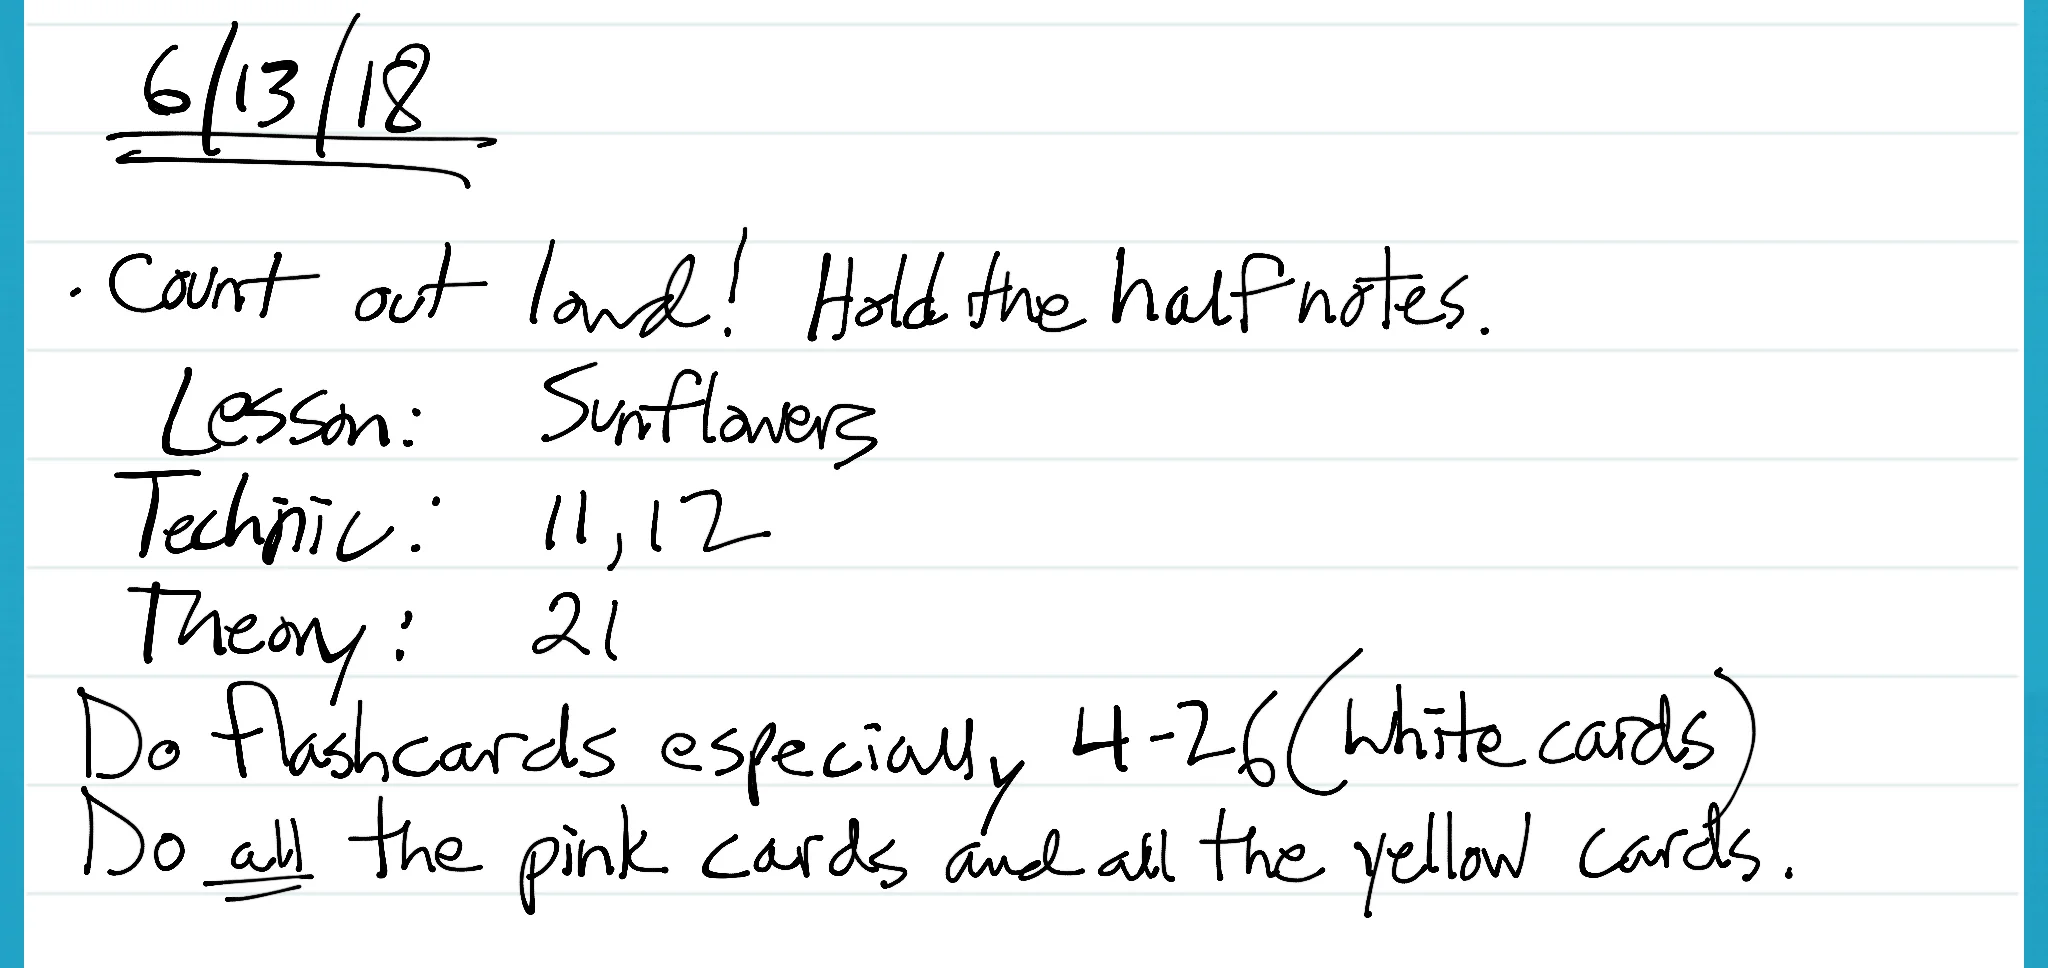 6/13/18
· Count out loud! Hold the half notes.
Lesson: Sunflowers
Technic: 11, 12
Theory: 21
Do flashcards especially 4-26 (white cards)
Do all the pink cards and all the yellow cards.